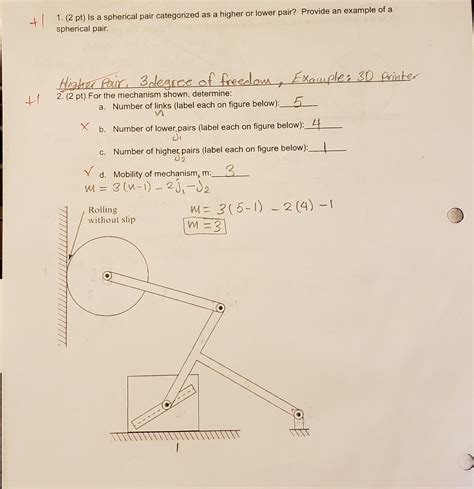 +1 1. (2 pt) Is a spherical pair categorized as a higher or lower pair? Provide an example of a
spherical pair.
Higher Pair, 3 degree of freedom, Example: 3D Printer
+1 2. (2 pt) For the mechanism shown, determine:
a. Number of links (label each on figure below): 5
n
x b. Number of lower pairs (label each on figure below): 4
j1
c. Number of higher pairs (label each on figure below): 1
j2
✓ d. Mobility of mechanism, m: 3
m = 3(n-1) - 2j1 - j2
Rolling
without slip
m = 3(5-1) - 2(4) - 1
m = 3
1